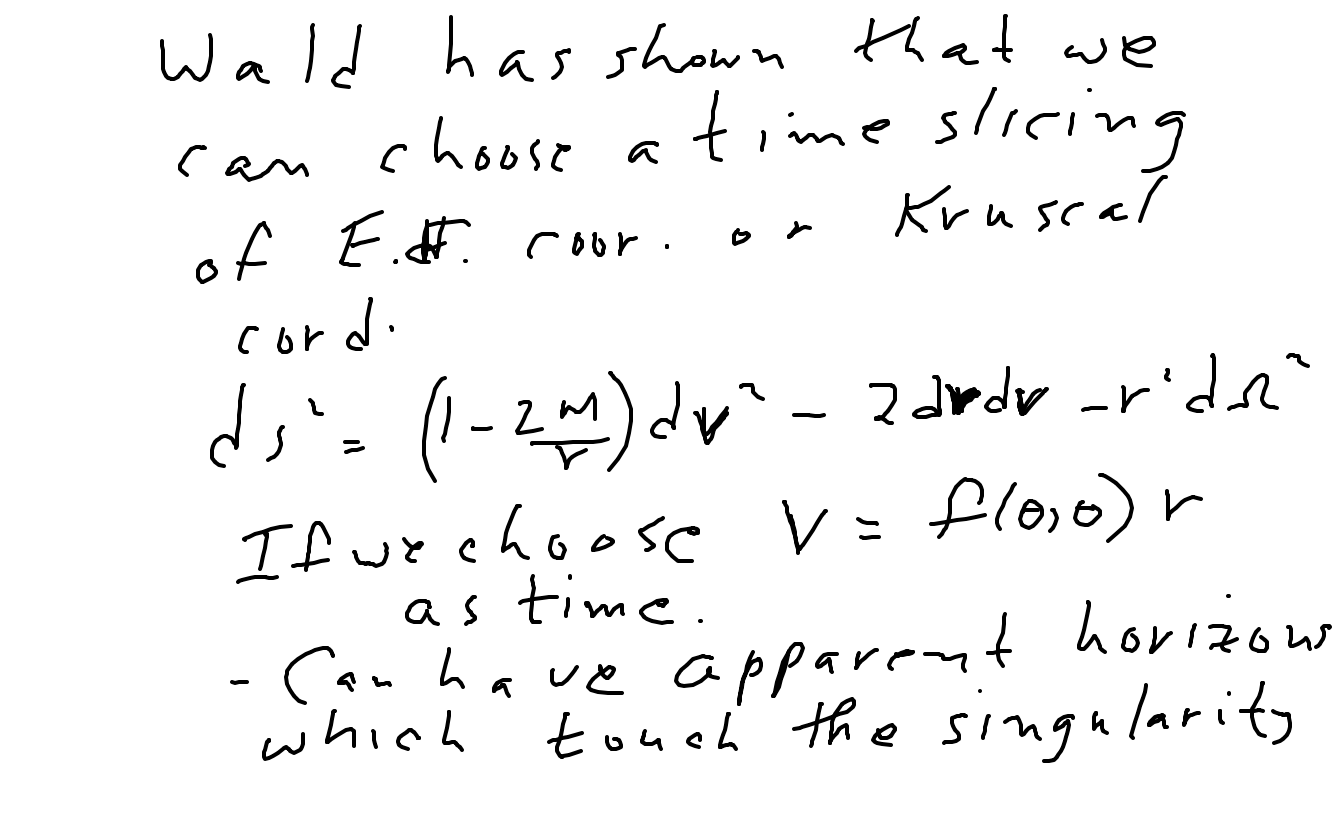 Wald has shown that we
can choose a time slicing
of E.F. coor. or Kruscal
cord.
ds² = (1 - 2M/r) dv² - 2dvdr - r²dΩ²
If we choose V = f(θ,φ) r
as time.
- Can have apparent horizons
which touch the singularity